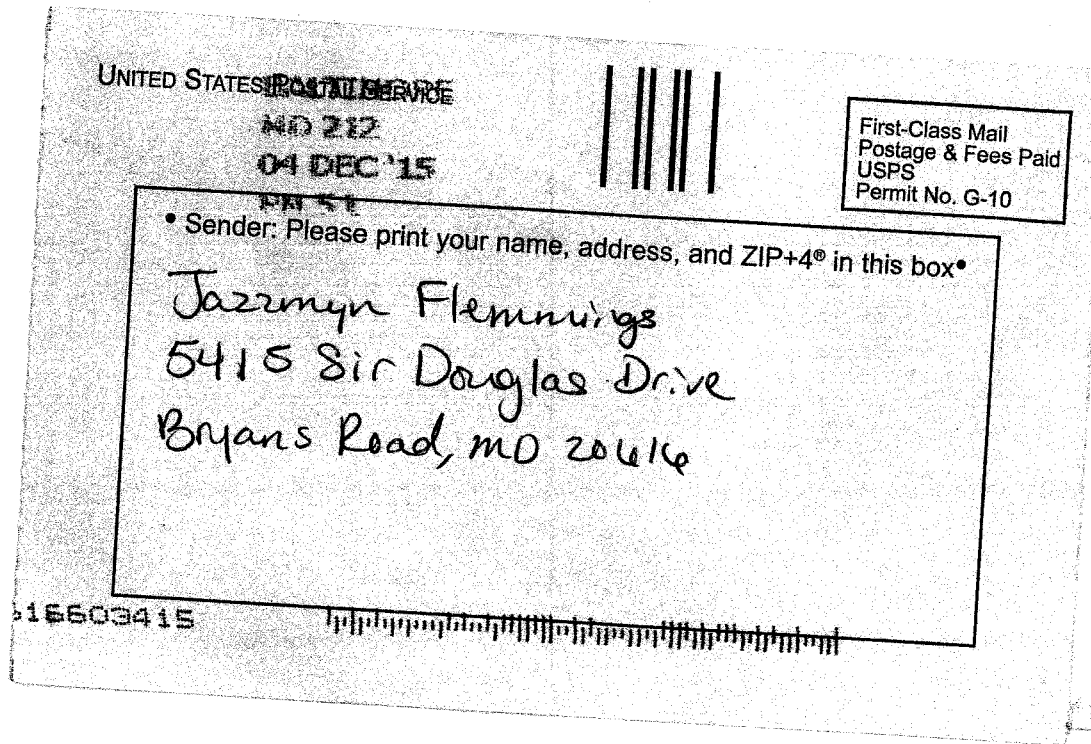 UNITED STATES POSTAL SERVICE
BALTIMORE
MD 212
04 DEC '15
First-Class Mail
Postage & Fees Paid
USPS
Permit No. G-10
• Sender: Please print your name, address, and ZIP+4® in this box•
Jazzmyn Flemmings
5415 Sir Douglas Drive
Bryans Road, MD 20616
16603415